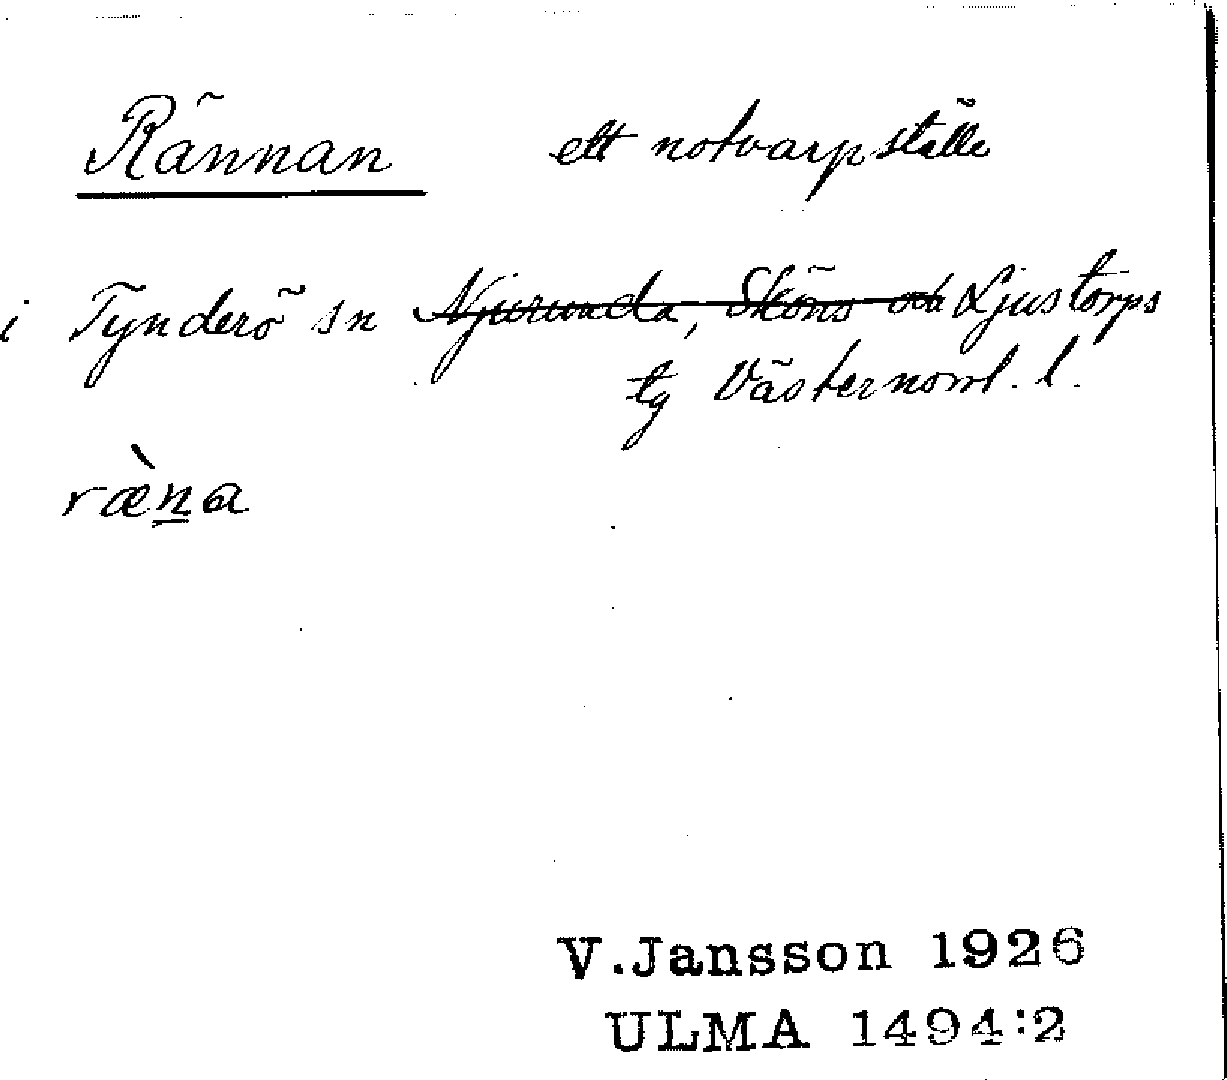 Rännan ett notvarpställe
i Tynderö sn Njurunda, Sköns och Ljustorps
tg Västernorrl. l.
ræ̀n̲a
V.Jansson 1926
ULMA 1494:2